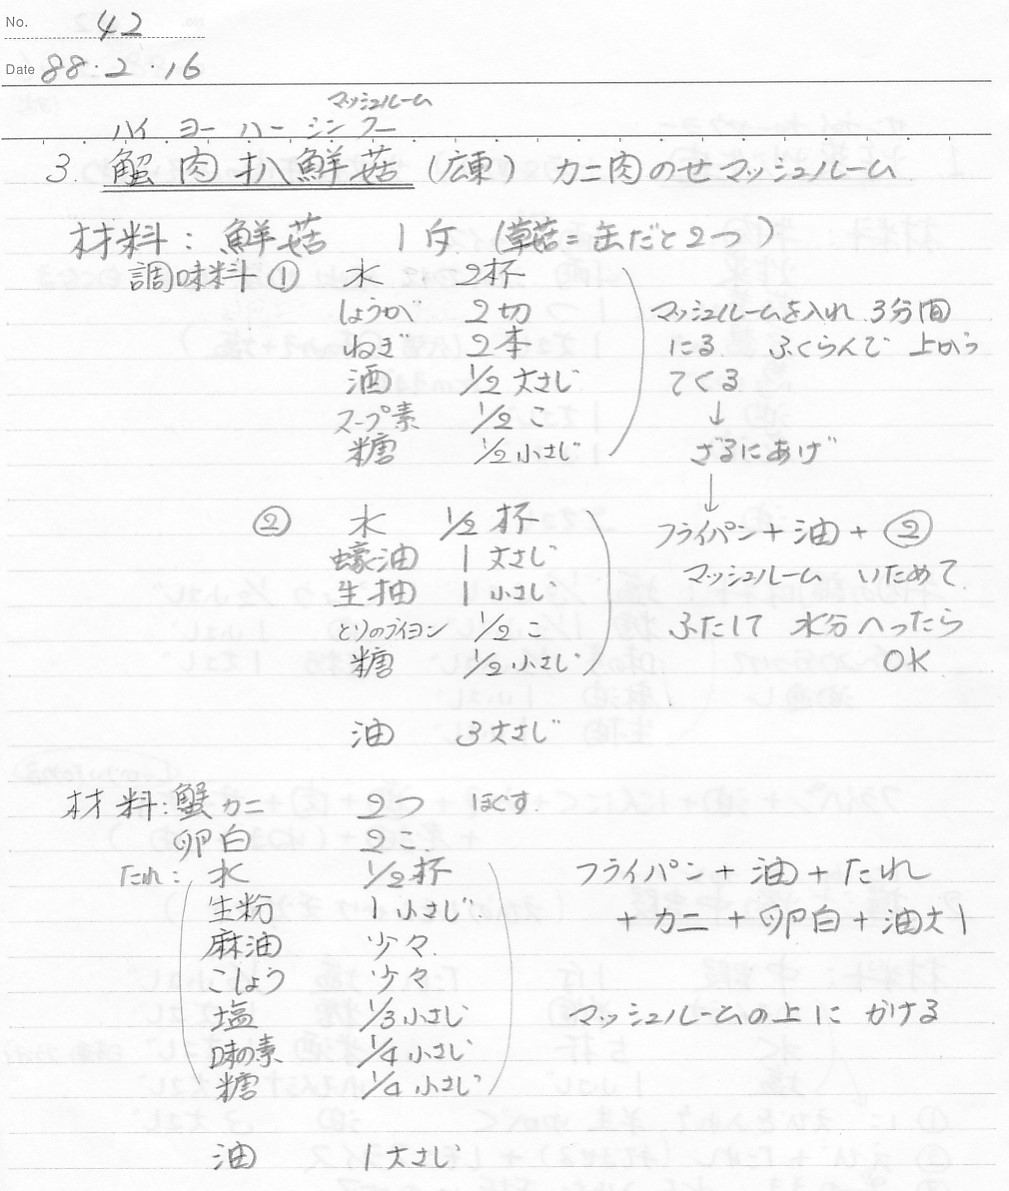 No. 42
Date 88・2・16
マッシュルーム
ハイ ヨー ハー シン クー
3. 蟹肉扒鮮菇 (広東) カニ肉のせマッシュルーム
材料: 鮮菇 1斤 (草菇=缶だと2つ)
調味料① 水 2杯
しょうが 2切 マッシュルームを入れ 3分間
ねぎ 2本 にる ふくらんで 上がっ
酒 1/2 大さじ てくる
スープ素 1/2 こ ↓
糖 1/2 小さじ ざるにあげ
↓
② 水 1/2 杯 フライパン+油+②
蠔油 1 大さじ マッシュルーム いためて
生抽 1 小さじ
とりのブイヨン 1/2 こ ふたして 水分へったら
糖 1/2 小さじ OK
油 3 大さじ
材料:蟹カニ 2つ ほぐす.
卵白 2こ
たれ: 水 1/2 杯 フライパン+油+たれ
生粉 1 小さじ +カニ+卵白+油大1
麻油 少々.
こしょう 少々
塩 1/3 小さじ マッシュルームの上に かける
味の素 1/4 小さじ
糖 1/4 小さじ
油 1 大さじ